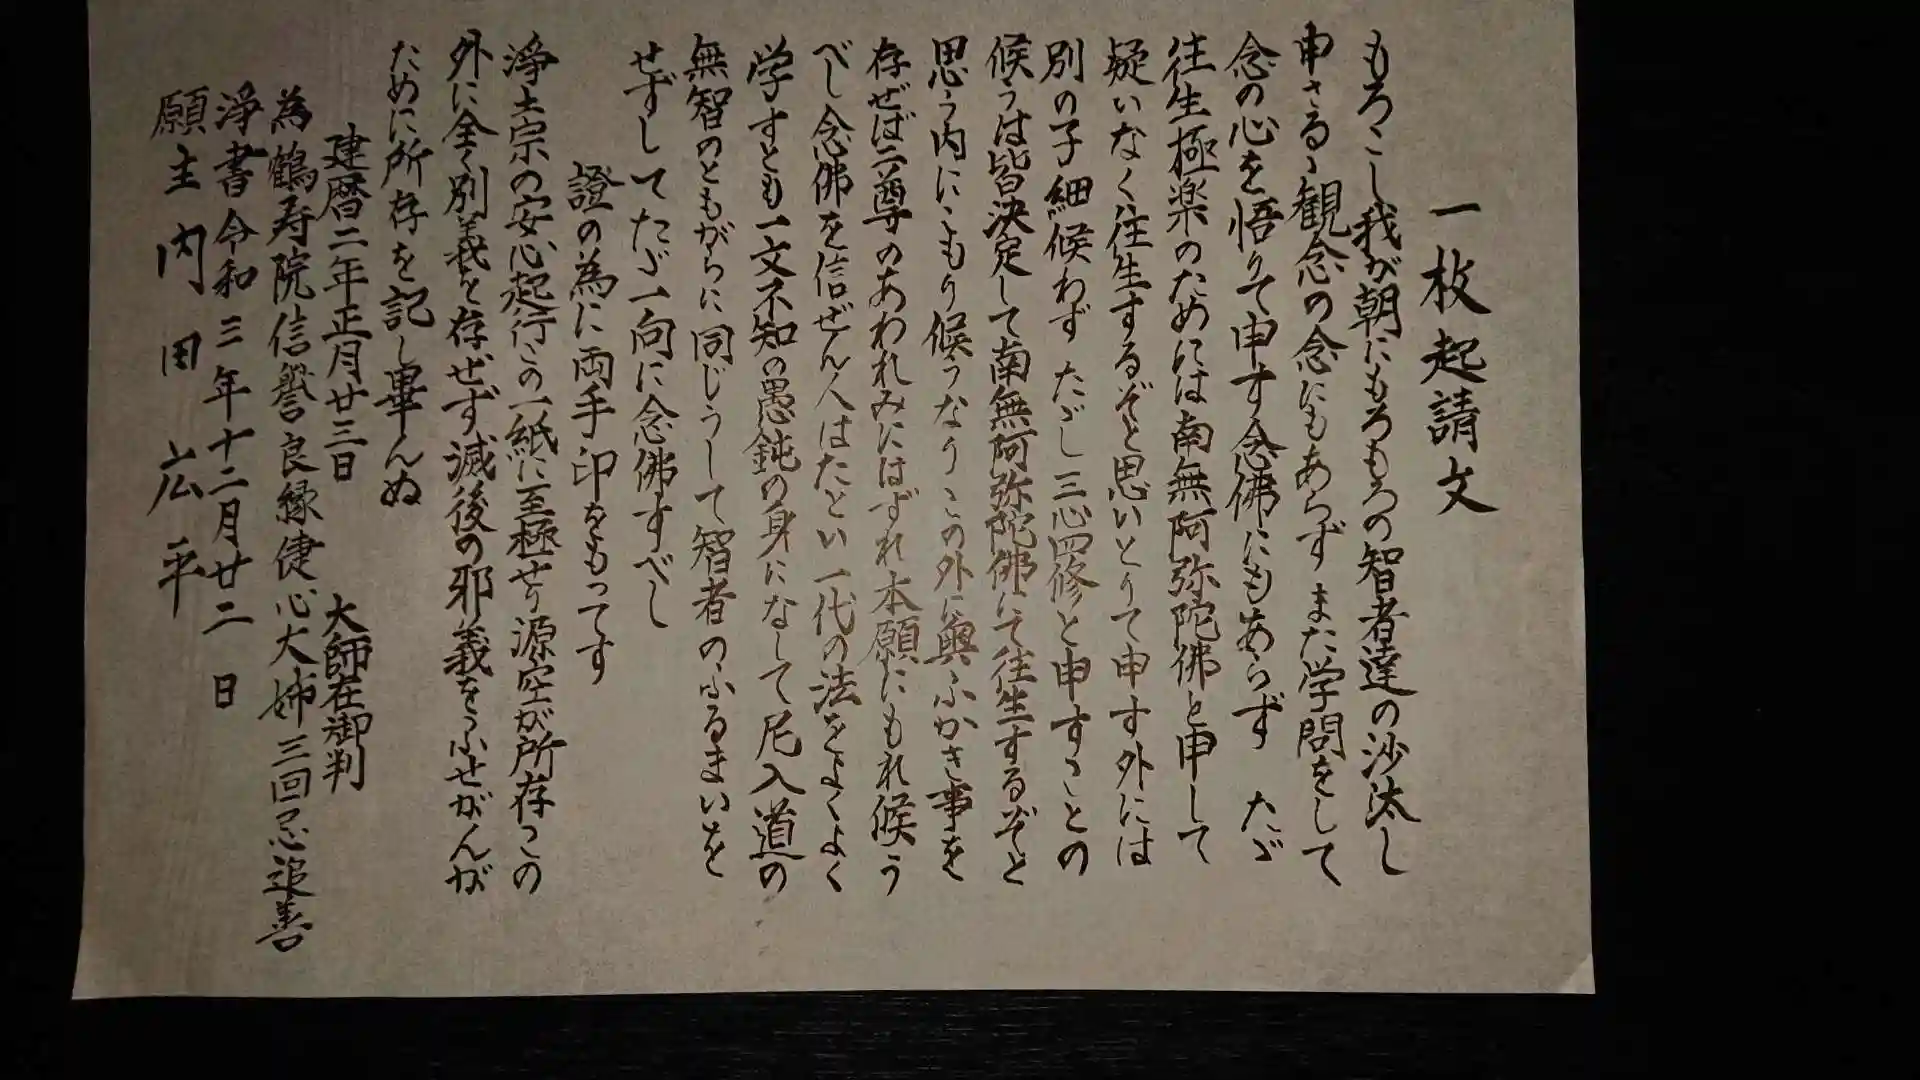 一枚起請文
もろこし我が朝にもろもろの智者達の沙汰し
申さるゝ観念の念にもあらずまた学問をして
念の心を悟りて申す念佛にもあらず たゞ
往生極楽のためには南無阿弥陀佛と申して
疑いなく往生するぞと思いとりて申す外には
別の子細候わずたゞし三心四修と申すことの
候うは皆決定して南無阿弥陀佛にて往生するぞと
思う内にこもり候うなりこの外に奥ふかき事を
存ぜば二尊のあわれみにはずれ本願にもれ候う
べし念佛を信ぜん人はたとい一代の法をよくよく
学すとも一文不知の愚鈍の身になして尼入道の
無智のともがらに同じうして智者のふるまいを
せずしてたゞ一向に念佛すべし
證の為に両手印をもってす
浄土宗の安心起行この一紙に至極せり源空が所存この
外に全く別義を存ぜず滅後の邪義をふせがんが
ために所存を記し畢んぬ
建暦二年正月廿三日 大師在御判
為鶴寿院信誉良縁健心大姉三回忌追善
浄書令和三年十二月廿二日
願主内田広平